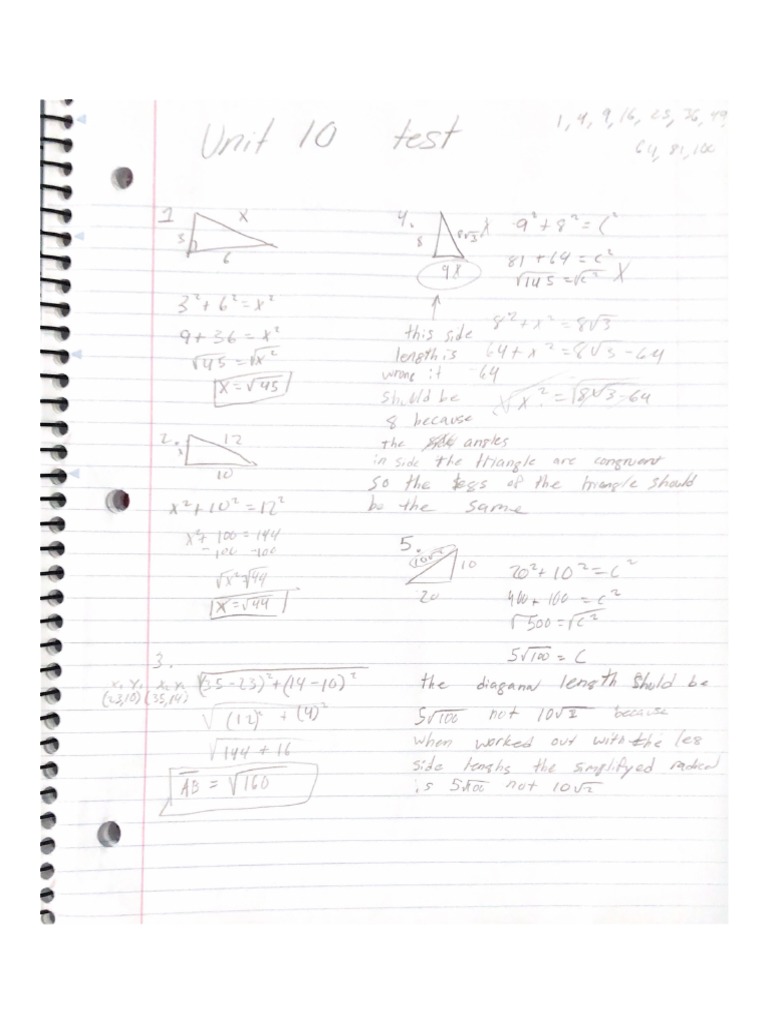 Unit 10 test
1, 4, 9, 16, 25, 36, 49,
64, 81, 100
1
x
3
6
3² + 6² = x²
9 + 36 = x²
√45 = √x²
x = √45
2.
12
x
10
x² + 10² = 12²
x² + 100 = 144
- 100 -100
√x² = √44
x = √44
3.
x₁ y₁ x₂ y₂
(23,10) (35,14)
√(35-23)² + (14-10)²
√(12)² + (4)²
√144 + 16
AB = √160
4.
8
8√3 X
9X
9² + 8² = C²
81 + 64 = c²
√145 = √c² X
8² + x² = 8√3
64 + x² = 8√3 - 64
64
√x² = √8√3 - 64
this side
length is
wrong it
should be
8 because
the angles
in side the triangle are congruent
so the legs of the triangle should
be the same
5.
10√2
10
20
20² + 10² = C²
400 + 100 = c²
√500 = √c²
5√100 = C
the diaganal length should be
5√100 not 10√2 because
when worked out with the leg
side lenghs the simplifyed radical
is 5√100 not 10√2